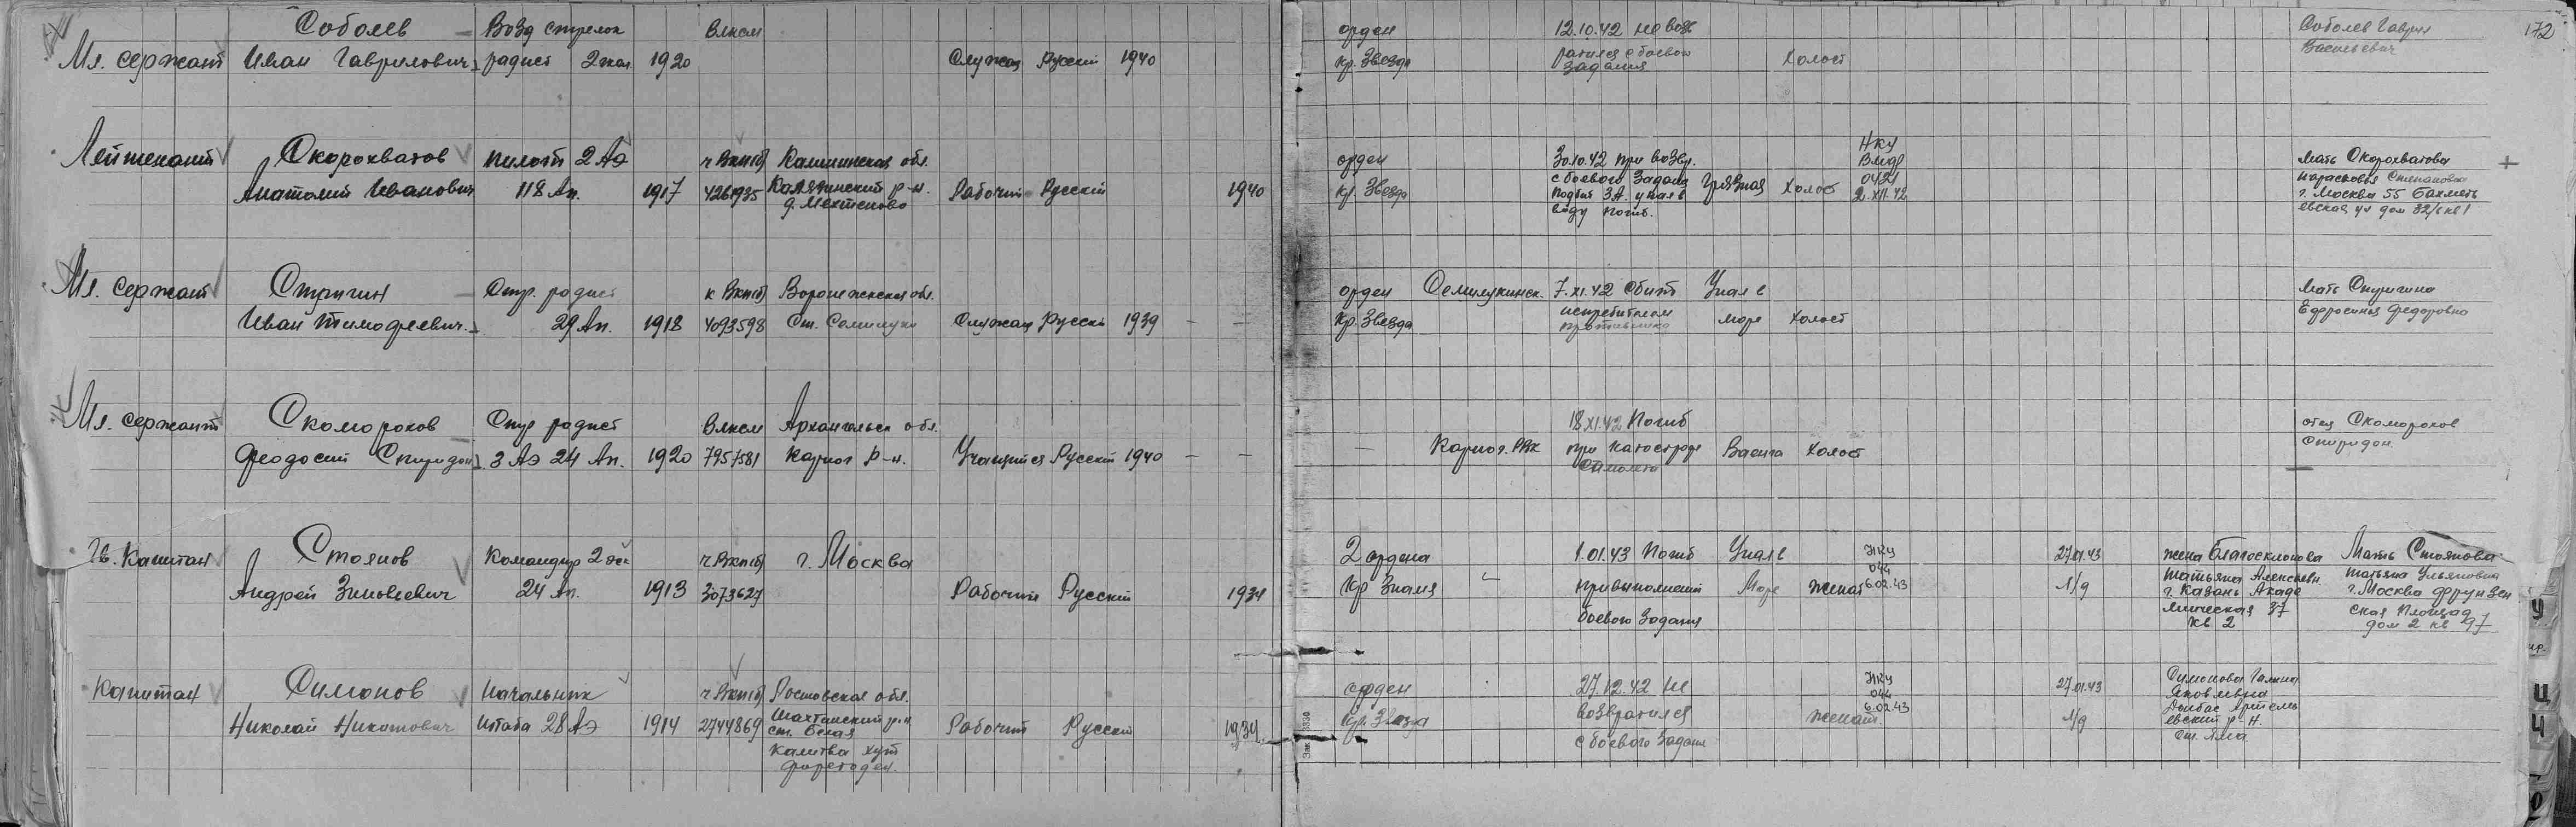 Соболев Возд стрелок Влксм орден 12.10.42 не возв Соболев Гаврил 172
Мл. сержант Иван Гаврилович радист 2 1920 Служащ Русский 1940 Кр. Звезда ратился с боевого Холост Васильевич
задания
НКУ
Лейтенант Скорохватов пилот 2 АЭ ч Вкпб Калининская обл. орден 30.10.42 при возвр. ВМФ Мать Скорохватова
Анатолий Иванович 118 Ап. 1917 4261935 Калязинский р-н. Рабочий Русский 1940 Кр. Звезда с боевого задания Грязная Холост 0421 Парасковья Степановна
подбит ЗА. упал в 2.XII.42 г. Москва 55 Бахметь
воду погиб. евская ул дом 32/
Мл. сержант Стригин Стр. радист к Вкпб Воронежская обл. орден Семилукинск. 7.XI.42 сбит Упал в Мать Стригина
Иван Тимофеевич. 29 Ап. 1918 4093598 Ст. Семилуки Служащ Русски 1939 — — Кр. Звезда истребителем море Холост Ефросинья Федоровна
противника
Мл. сержант Скоморохов Стр радист Влксм Архангельск обл. 18 XI.42 Погиб отец Скоморохов
Феодосий Спиридон 3 АЭ 24 Ап. 1920 7957581 Каргоп р-н. Учащийся Русский 1940 — — — Каргоп. РВК при катастрофе Ваенга Холост Спиридон
самолета
Гв. Капитан Стоянов Командир 2 ч Вкпб г. Москва 2 ордена 1.01.43 Погиб Упал в НКУ 27.01.43 жена Благосклонова Мать Стоянова
Андрей Зиновьевич 24 Ап. 1913 3073627 Рабочий Русский 1934 Кр Знамя при выполнении Море женат 044 6.02.43 л/д Татьяна Алексеевн. Татьяна Ульяновна
боевого задания г. Казань Акаде г. Москва Фрунзен
мическая 37 ская площад
кв 2 дом 2 кв 97
Капитан Симонов Начальник ч Вкпб Ростовская обл. орден 27.12.42 не НКУ 27.01.43 Симонова Галина
Николай Никонович штаба 28 АЭ 1914 2744869 Шахтинский р-н Рабочий Русский 1934 Кр. Звезда возвратился женат. 044 6.02.43 л/д Яковлевна
ст. Белая с боевого задания Донбас Артемь
Калитва хут евский р-н.
ст. Яма